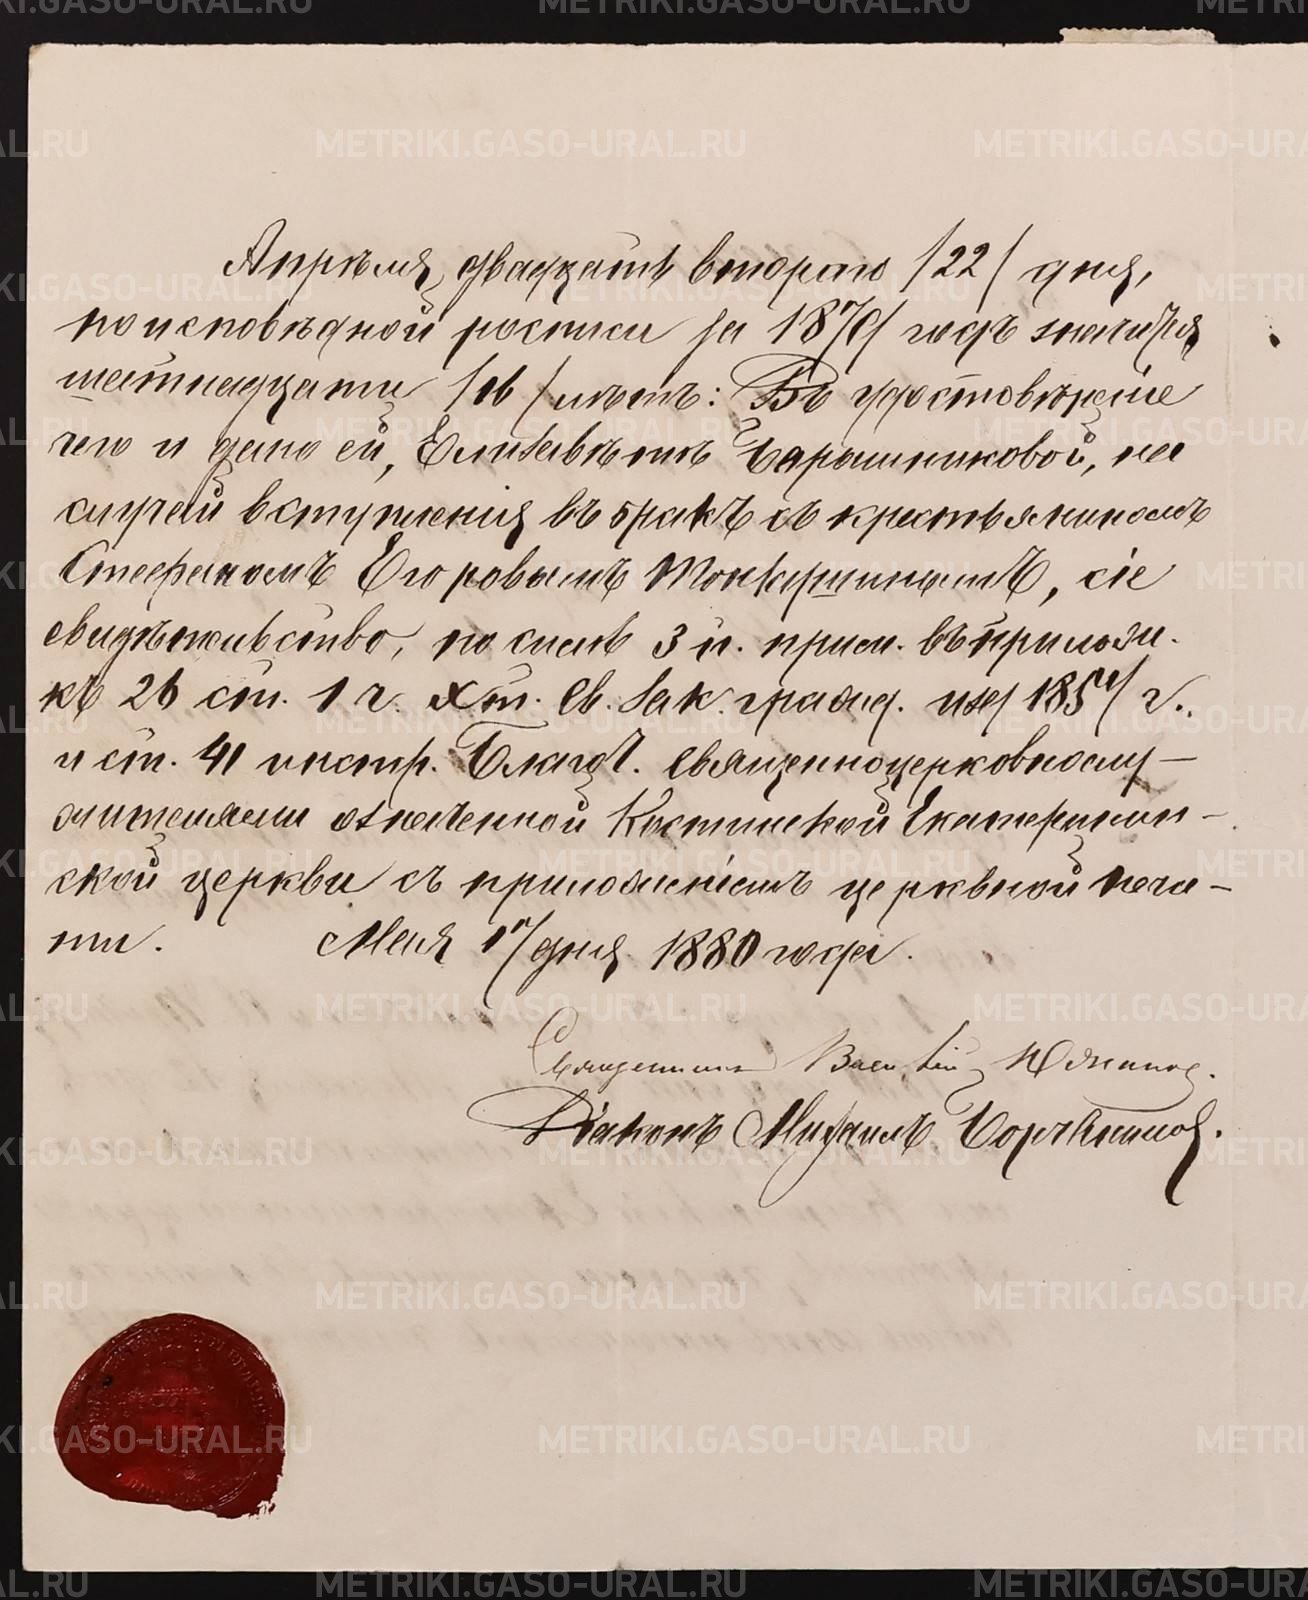 Апрѣля двадцать втораго /22/ дня,
по исповѣдной росписи за 187 годъ значится
шестнадцати /16/ лѣтъ: Въ удостовѣреніе
чего и дано ей, Елизаветѣ Барашниковой, на
случай вступленія въ бракъ съ крестьяниномъ
Стефаномъ Егоровымъ, сіе
свидѣтельство, по силѣ 3 п. прим. въ прилож.
къ 26 ст. 1 ч. X т. Св. Зак. гражд. изд 1857 г.
и ст. 41 инстр. Благоч. священноцерковнослу-
жителями означенной Костинской Екатеринин-
ской церкви съ приложеніемъ церквной печа-
ти. Мая дня 1880 года.
Священникъ Василій
Діаконъ Михаилъ
METRIKI.GASO-URAL.RU